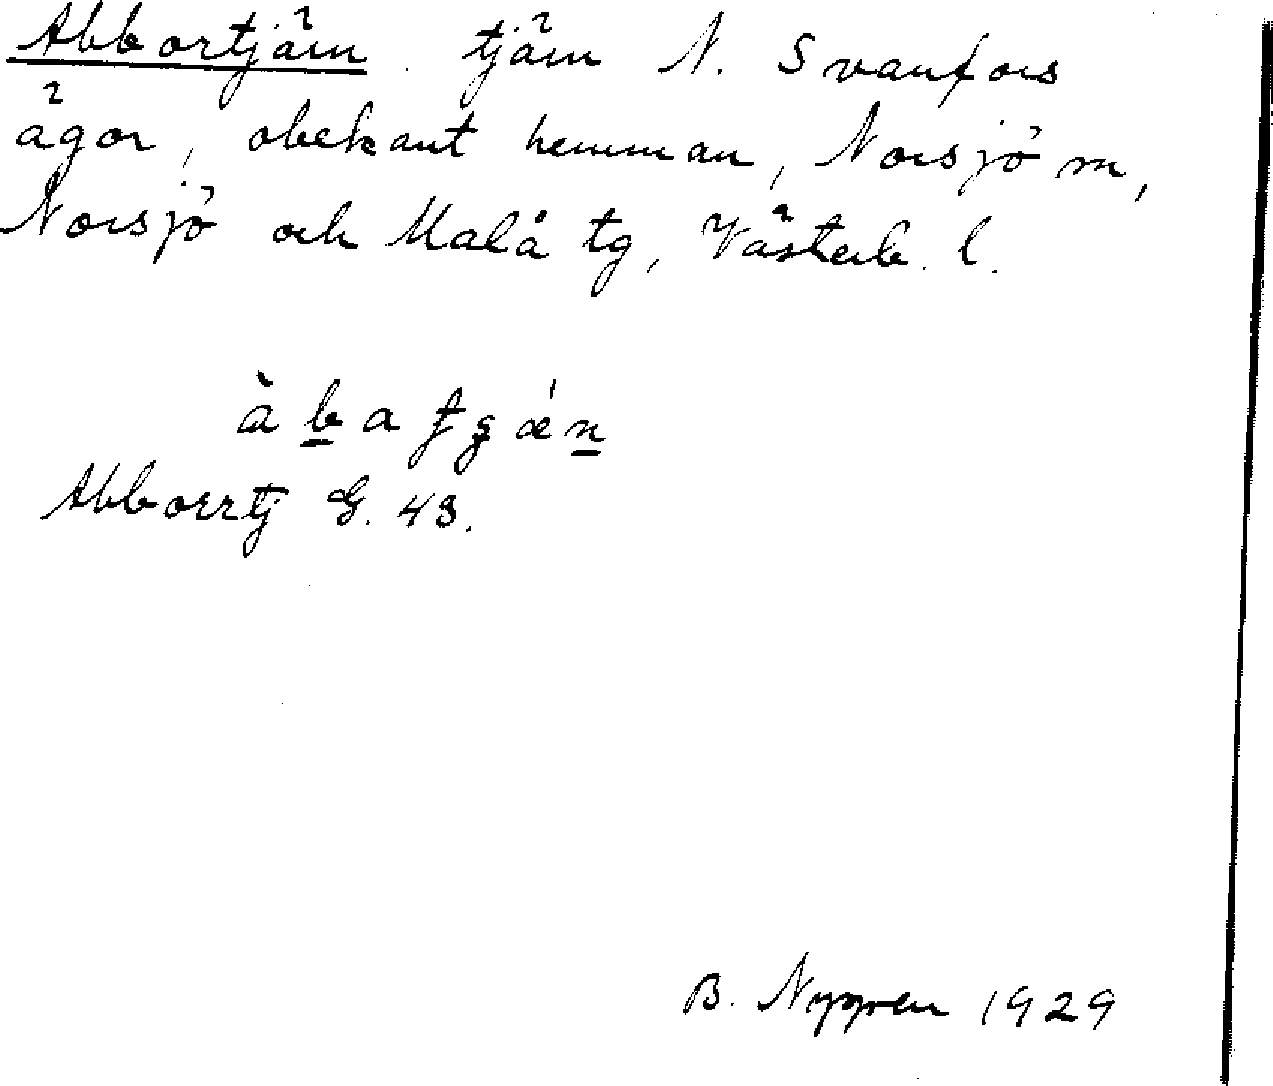 Abbortjärn tjärn N. Svanfors
ägor, obekant hemman, Norsjö sn,
Norsjö och Malå tg, Västerb. l.
Abborrtj G. 43.
B. Nygren 1929